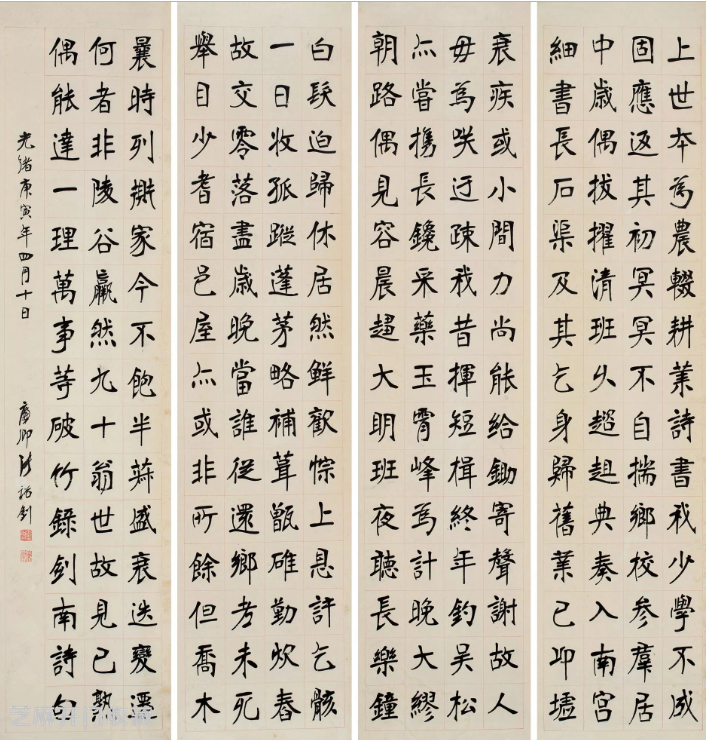 上世本為農輟耕業詩書我少學不成
固應返其初冥冥不自揣鄉校參羣居
中歲偶拔擢清班久趑趄典奏入南宮
細書長石渠及其乞身歸舊業已邱墟
衰疾或小間力尚能給鋤寄聲謝故人
毋為笑迂疎我昔揮短楫終年釣吳松
亦嘗攜長鑱采藥玉霄峰為計晚大繆
朝路偶見容晨趨大明班夜聽長樂鐘
白髮迫歸休居然鮮歡悰上恩許乞骸
一日收孤蹤蓬茅略補葺甑碓勤炊舂
故交零落盡歲晚當誰從還鄉考未死
舉目少耆宿邑屋亦或非所餘但喬木
曩時列戟家今不飽半菽盛衰迭變遷
何者非陵谷羸然九十翁世故見已熟
偶能達一理萬事等破竹錄劍南詩句
光緒庚寅年四月十日
廉卿張裕釗